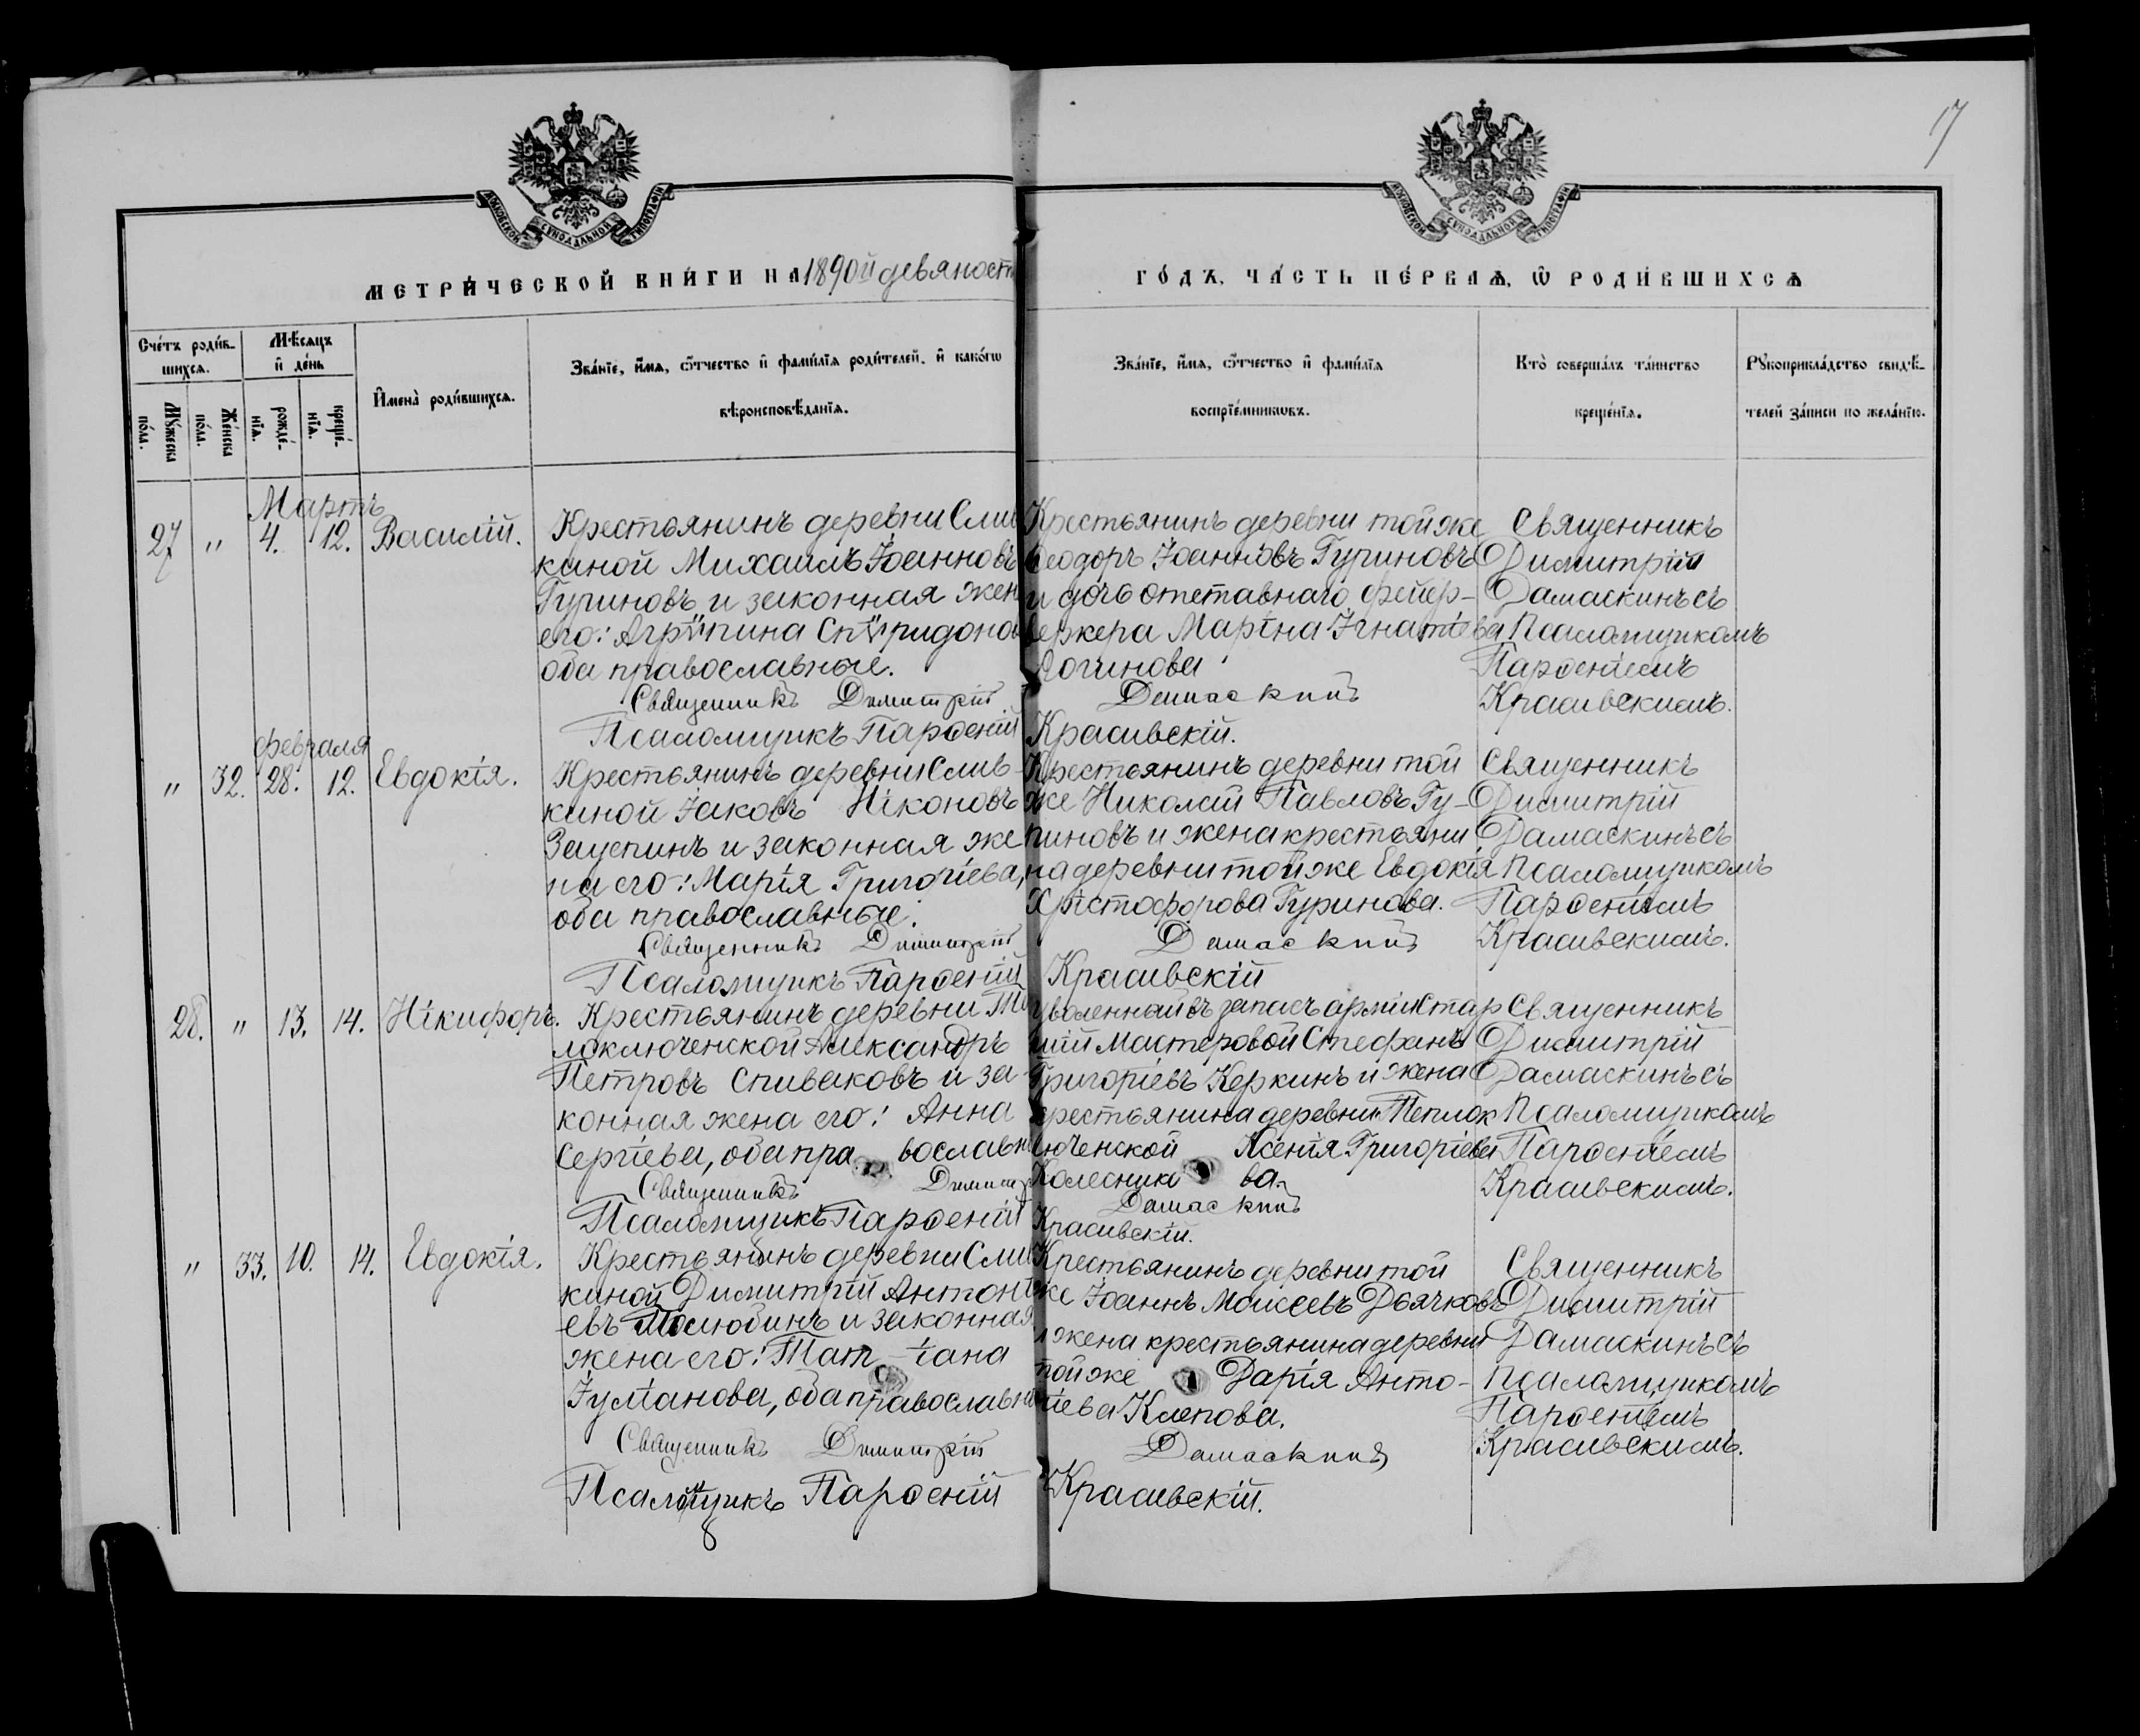 17
МОСКОВСКОЙ СѴНОДАЛЬНОЙ ТИПОГРАФІИ
МОСКОВСКОЙ СѴНОДАЛЬНОЙ ТИПОГРАФІИ
МЕТРИ́ЧЕСКОЙ КНИ́ГИ НА 1890й девяност
ГО́ДЪ, ЧА́СТЬ ПЕ́РВАѦ, Ѡ РОДИ́ВШИХСѦ
Сче́тъ роди́в-
шихсѧ.
Мꙋ́жеска по́ла.
Же́нска по́ла.
Мѣ́сѧцъ
и҆ де́нь
рожде́-нїѧ.
креще́-нїѧ.
И҆мена̀ роди́вшихсѧ.
Зва́нїе, и҆́мѧ, ѻ҆́тчество и҆ фами́лїѧ роди́телей, и҆ како́гѡ
вѣроисповѣ́данїѧ.
Зва́нїе, и҆́мѧ, ѻ҆́тчество и҆ фами́лїѧ
воспрїе́мникѡвъ.
Кто̀ соверша́лъ та́инство
креще́нїѧ.
Рꙋкоприкла́дство свидѣ́-
телей за́писи по жела́нїю.
Мартъ
27 " 4. 12. Василій.
Крестьянинъ деревни Сли
киной Михаилъ Іоанновъ
Гуриновъ и законная жен
его: Агрѵпина Спѵридоно
оба православные.
Священникъ Димитрій
Псаломщикъ Парѳеній
Крестьянинъ деревни той же
Ѳеодоръ Іоанновъ Гуриновъ
и дочь отставнаго фейер-
веркера Марѝна Игнатіева
Логинова
Дамаскинъ
Красивскій.
Священникъ
Димитрій
Дамаскинъ съ
Псаломщикомъ
Парѳеніемъ
Красивскимъ.
февраля
" 32. 28. 12. Евдокія.
Крестьянинъ деревни Слив-
киной Іаковъ Ніконовъ
Защепинъ и законная же
на его: Марія Григоріева,
оба православные.
Священникъ Димитрій
Псаломщикъ Парѳеній
Крестьянинъ деревни той
же Николай Павловъ Гу-
риновъ и жена крестьяни
на деревни той же Евдокія
Хрістофорова Гуринова.
Дамаскинъ
Красивскій
Священникъ
Димитрій
Дамаскинъ съ
Псаломщикомъ
Парѳеніемъ
Красивскимъ.
28. " 13. 14. Нікифоръ.
Крестьянинъ деревни Те
плоключенской Александръ
Петровъ Спиваковъ и за-
конная жена его: Анна
Сергіева, оба православн
Священникъ Димитр
Псаломщикъ Парѳеній
уволенный въ запасъ арміи Стар
шій Мастеровой Стефанъ
Григоріевъ Керкинъ и жена
крестьянина деревни Теплок
люченской Ксенія Григоріева
Колесникова.
Дамаскинъ
Красивскій.
Священникъ
Димитрій
Дамаскинъ съ
Псаломщикомъ
Парѳеніемъ
Красивскимъ.
" 33. 10. 14. Евдокія.
Крестьянинъ деревни Сли
киной Димитрій Антоні
евъ Полюбинъ и законная
жена его: Татіана
Іуліанова, оба православн
Священникъ Димитрій
Псаломщикъ Парѳеній
Крестьянинъ деревни той
же Іоаннъ Моисеевъ Дьячковъ
и жена крестьянина деревни
той же Дарія Анто-
ніева Клепова.
Дамаскинъ
Красивскій.
Священникъ
Димитрій
Дамаскинъ съ
Псаломщикомъ
Парѳеніемъ
Красивскимъ.